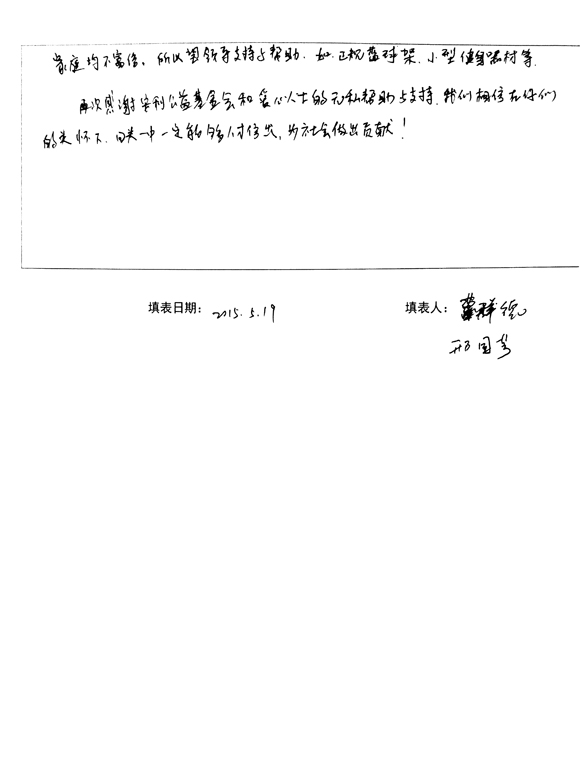 家庭均不富裕。所以望领导支持与帮助。如正规篮球架、小型健身器材等。
再次感谢安利公益基金会和爱心人士的无私帮助与支持，我们相信在你们
的关怀下，一中一定能够人才倍出，为社会做出贡献！
填表日期： 2015.5.19
填表人：
邢国芳